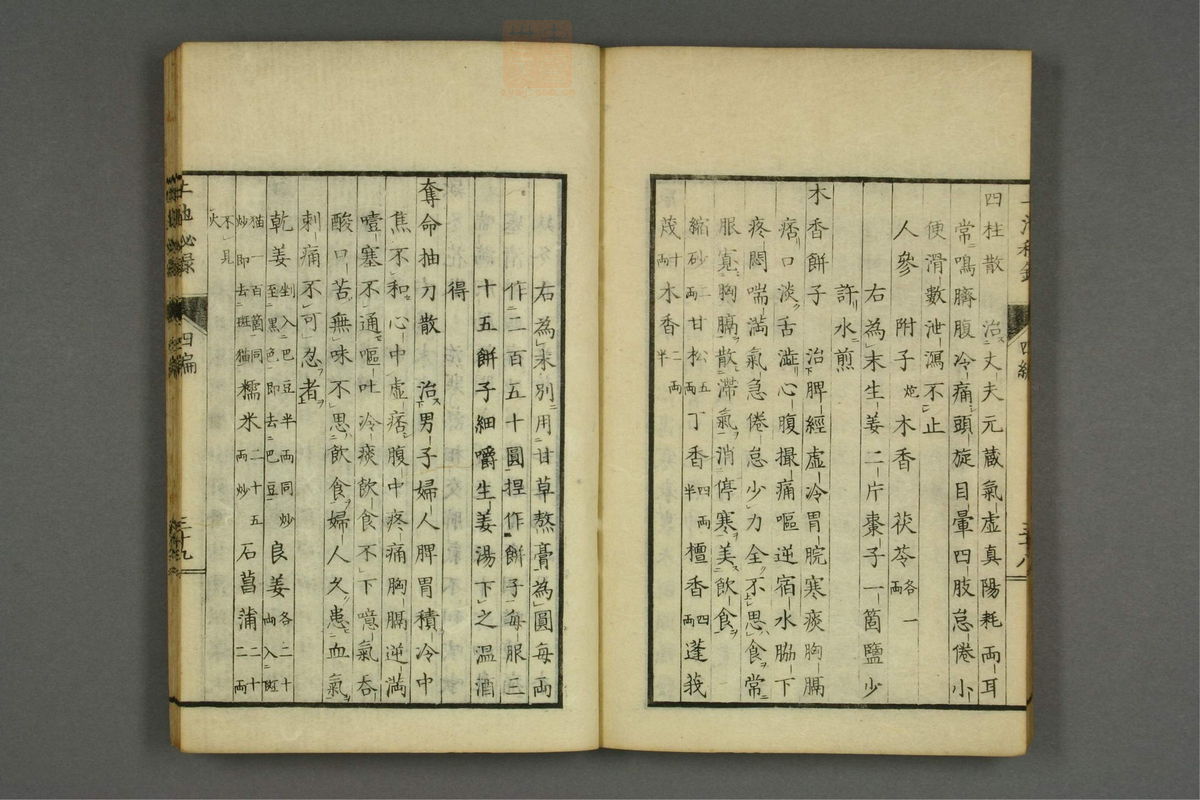 四柱散 治丈夫元蔵氣虚真陽耗両耳
常鳴臍腹冷痛頭旋目暈四肢怠倦小
便滑数泄瀉不止
人參 附子炮 木香 茯苓各一両
右為末生姜二片棗子一箇鹽少
許水煎
木香餅子 治脾經虚冷胃脘寒痰胸膈
痞口淡舌澁心腹撮痛嘔逆宿水脇下
疼悶喘満氣急倦怠少力全不思食常
服寛胸膈散滞氣消停寒美飲食
縮砂二両 甘松五両 丁香四両半 檀香四両 蓬莪
茂十両 木香二両半
右為末別用甘草熬膏為圓毎両
作二百五十圓捏作餅子毎服三
十五餅子細嚼生姜湯下之温酒
得
奪命抽刀散 治男子婦人脾胃積冷中
焦不和心中虚痞腹中疼痛胸膈逆満
噎塞不通嘔吐冷痰飲食不下噫氣吞
酸口苦無味不思飲食婦人久患血氣
刺痛不可忍者
乾姜剉入巴豆半両同炒至黒色即去巴豆 良姜各二十両入斑
猫一百箇同炒即去斑猫 糯米二十五両炒 石菖蒲二十二両
不見火
四編
三十九